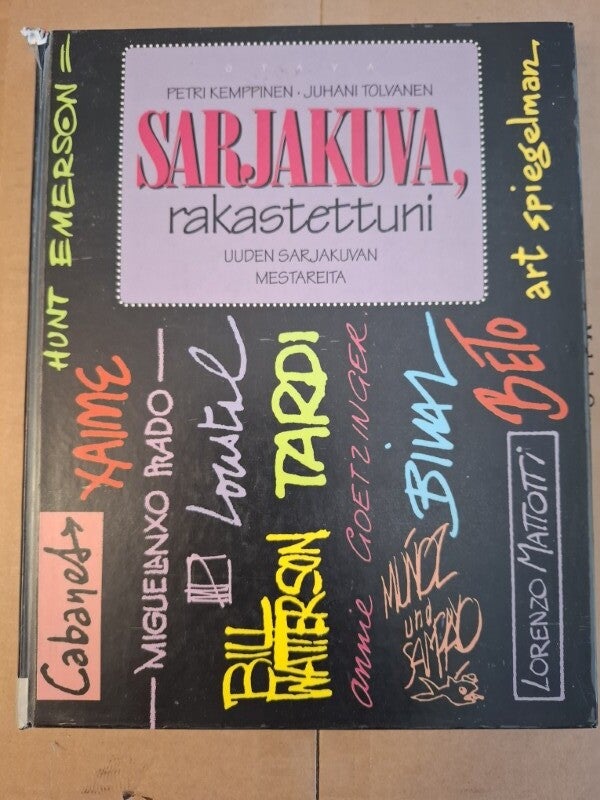 OTAVA
PETRI KEMPPINEN · JUHANI TOLVANEN
SARJAKUVA,
rakastettuni
UUDEN SARJAKUVAN
MESTAREITA
HUNT EMERSON =
art spiegelman
XAIME
MIGUELANXO PRADO
Loustal
TARDI
annie GOETZINGER.
BILAL
BETO
Cabanes
BILL
WATTERSON
MUÑOZ
und
SAMPAYO
LORENZO MATTOTTI